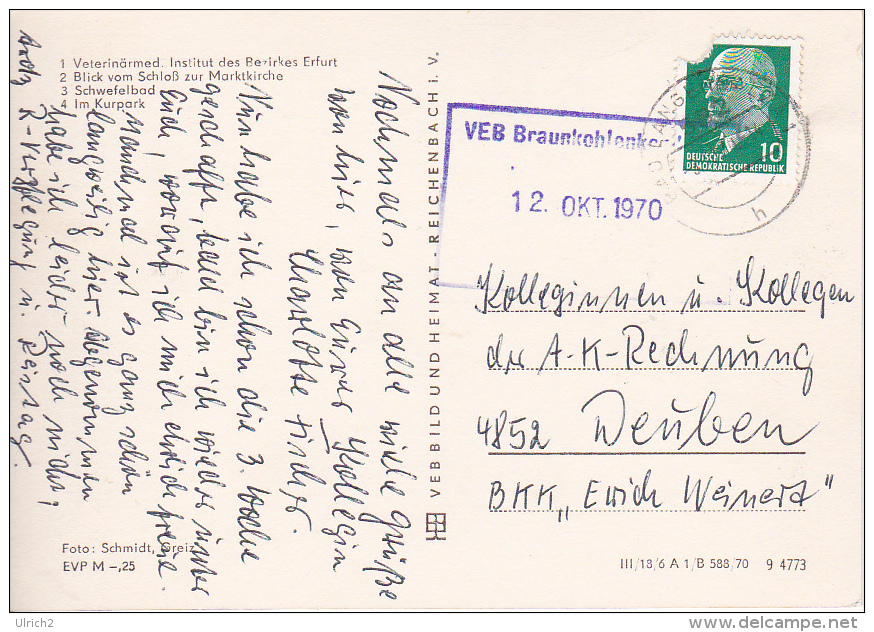 1 Veterinärmed. Institut des Bezirkes Erfurt
2 Blick vom Schloß zur Marktkirche
3 Schwefelbad
4 Im Kurpark
Nochmals an alle viele Grüße
von hier, von Eurer Kollegin
Charlotte Fischer.
Nun habe ich schon die 3. Woche
geschafft, bald bin ich wieder unter
Euch, worauf ich mich ehrlich freue.
Manchmal ist es ganz schön
langweilig hier. Abgenommen
habe ich leider noch nichts,
trotz R-Kost
Foto: Schmidt, Greiz
EVP M –,25
VEB BILD UND HEIMAT · REICHENBACH i. V.
VEB Braunkohlenko
12. OKT. 1970
DEUTSCHE
DEMOKRATISCHE REPUBLIK
10
h
Kolleginnen u. Kollegen
der A-K-Rechnung
4852 Deuben
BKK „Erich Weinert"
III/18/6 A 1/B 588/70 9 4773
Ulrich2